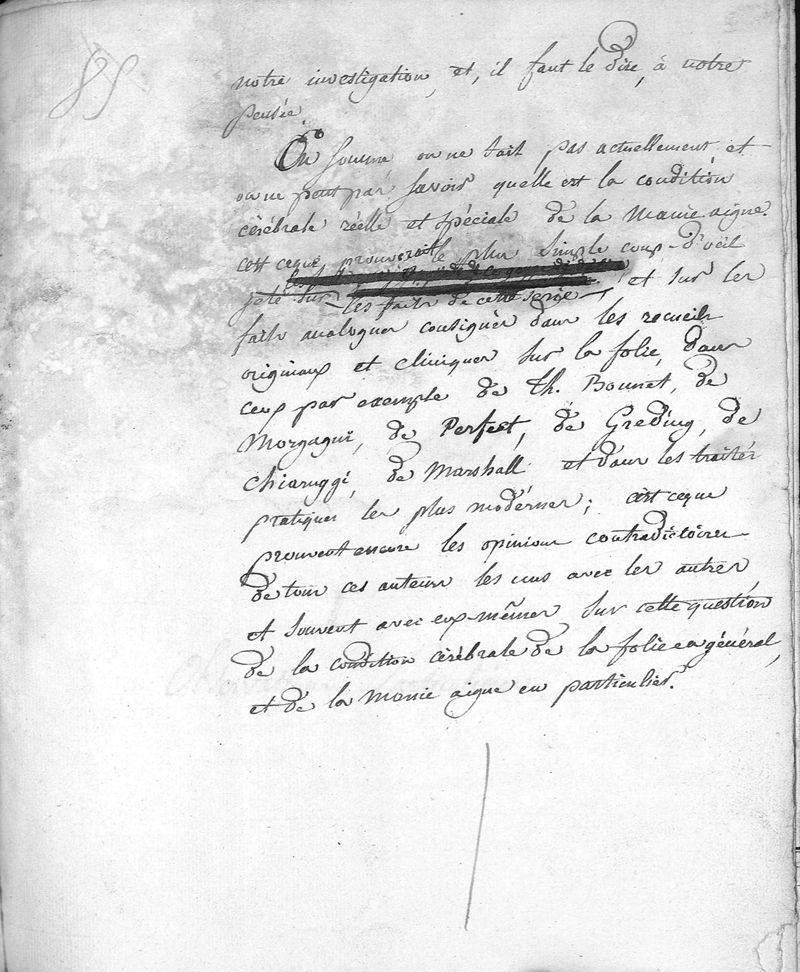 85
notre investigation, et, il faut le dire, à notre
pensée.
En somme on ne sait pas actuellement et
on ne peut pas savoir quelle est la condition
cérébrale réelle et spéciale de la manie aigue.
c'est ceque prouverait le plus simple coup-d'oeil
jeté sur
les faits de cette serie, et sur les
faits analogues consignés dans les recueils
originaux et cliniques sur la folie, dans
ceux par exemple de Th. Bonnet, de
Morgagni, de Perfect, de Greding, de
Chiaruggi, de Marshall et dans les traités
pratiques les plus modernes; c'est ceque
prouvent encore les opinions contradictoires
de tous ces auteurs les uns avec les autres,
et souvent avec eux-mêmes sur cette question
de la condition cérébrale de la folie en général,
et de la manie aigue en particulier.